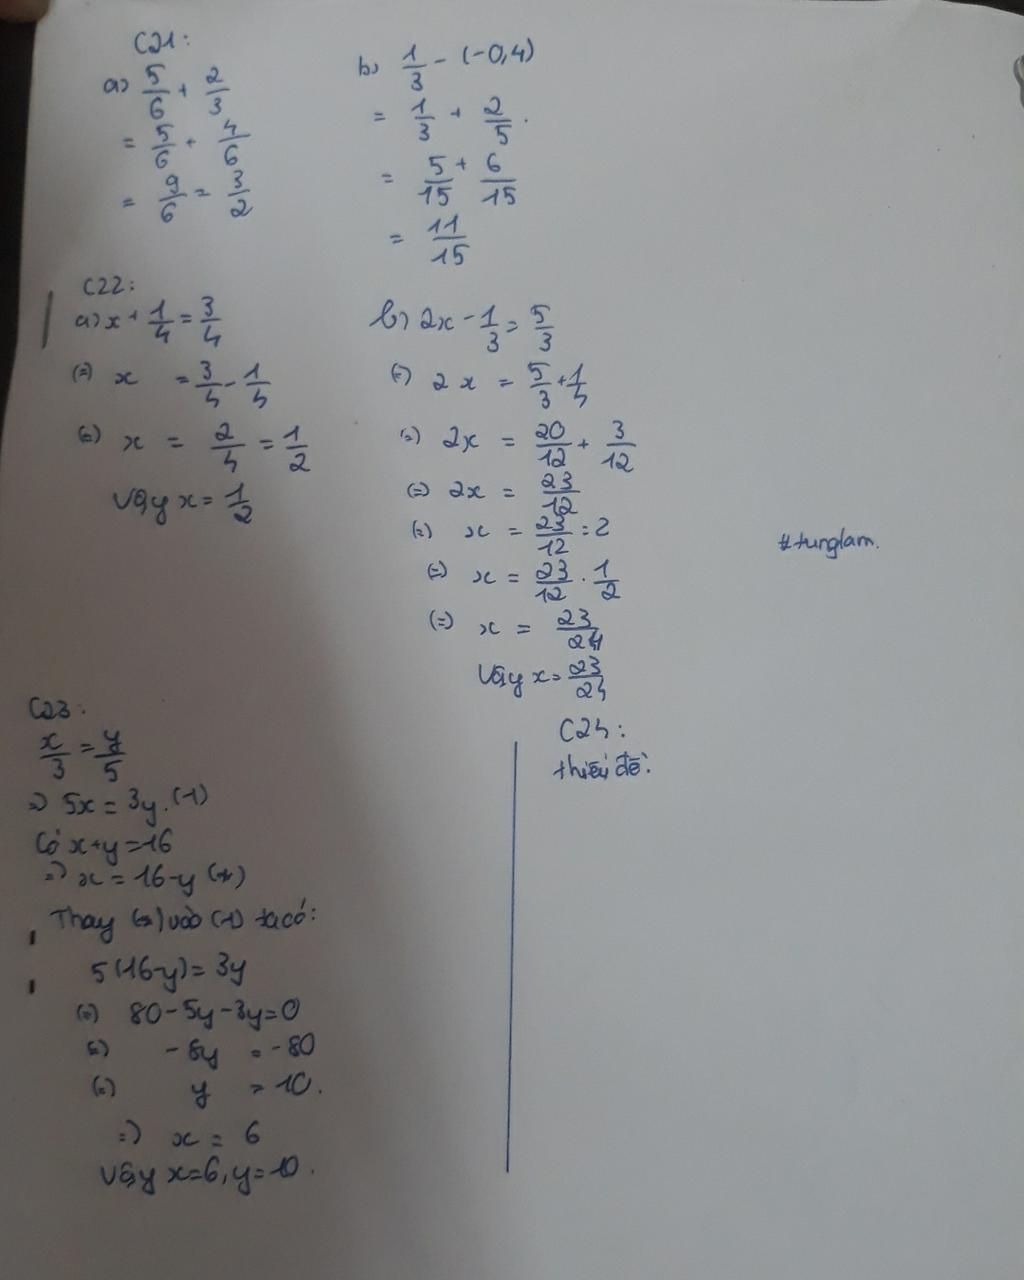 C21:
a) 5/6 + 2/3
= 5/6 + 4/6
= 9/6 = 3/2
b) 1/3 - (-0,4)
= 1/3 + 2/5.
= 5/15 + 6/15
= 11/15
C22:
a) x + 1/4 = 3/4
(=) x = 3/4 - 1/4
(=) x = 2/4 = 1/2
Vậy x = 1/2
b) 2x - 1/3 = 5/3
(=) 2x = 5/3 + 1/4
(=) 2x = 20/12 + 3/12
(=) 2x = 23/12
(=) x = 23/12 : 2
(=) x = 23/12 . 1/2
(=) x = 23/24
Vậy x = 23/24
#tunglam.
C23:
x/3 = y/5
=) 5x = 3y. (1)
Có x+y=16
=) x = 16-y (*)
Thay (*) vào (1) ta có:
5(16-y) = 3y
(=) 80-5y-3y=0
(=) -8y = -80
(=) y = 10.
=) x = 6
Vậy x=6, y=10.
C24:
thiếu đề.